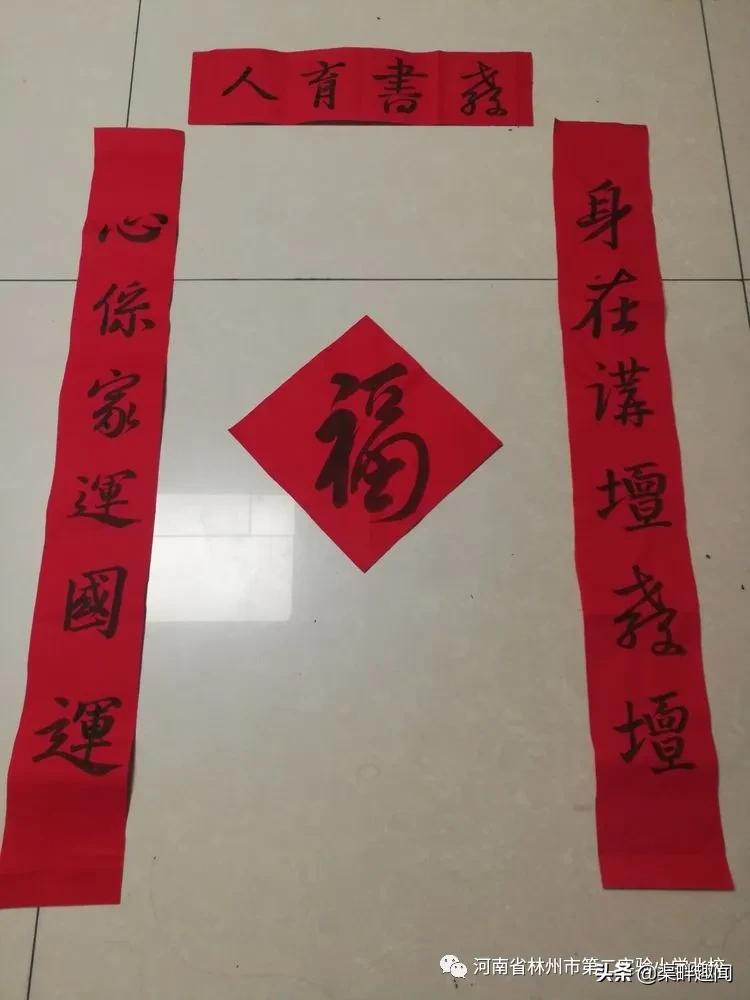 教書育人
身在講壇教壇
心係家運國運
福
河南省林州市第二实验小学北校
头条 @渠畔趣闻